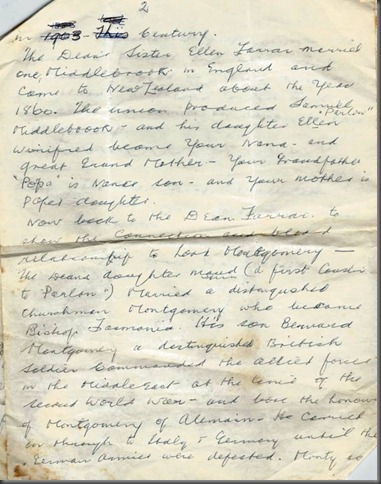 2
in 1903 This Century.
The Dean's Sister Ellen Farrar married
one Middlebrook in England and
came to New Zealand about the Year
1860. The union produced Samuel
"Perlon"
Middlebrook - and his daughter Ellen
Winifred became Your Nana - and
great Grand Mother - Your Grandfather
"Papa" is Nana's son - and Your Mother is
Papas daughter.
Now back to the Dean Farrar. to
show the Connection and blood
relationship to Lord Montgomery -
The Deans daughter Maud (a first Cousin
to Perlon") married a distinguished
churchman Montgomery who became
Bishop Tasmania. His son Bernard
Montgomery a distinguished British
Soldier Commanded the allied forces
in the Middle East at the time of the
second World War - and bore the honour
of Montgomery of Alemain - He carried
on through to Italy & Germany until the
German Armies were defeated. Monty as